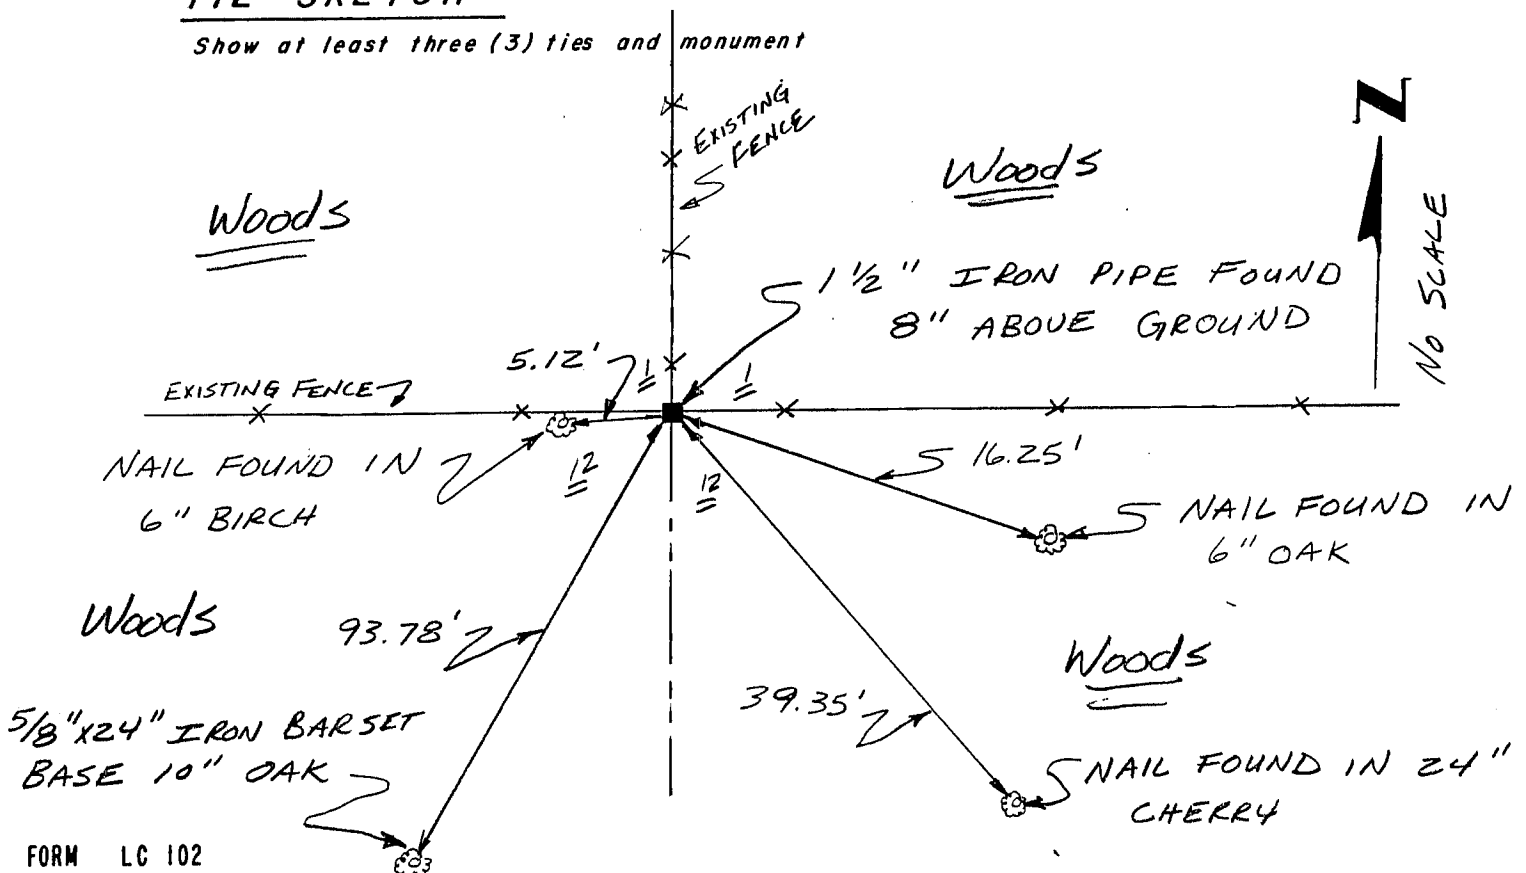 TIE SKETCH
Show at least three (3) ties and monument
EXISTING
FENCE
Woods
Woods
N
NO SCALE
1 ½" IRON PIPE FOUND
8" ABOVE GROUND
5.12'
1
1
EXISTING FENCE
NAIL FOUND IN
6" BIRCH
12
12
16.25'
NAIL FOUND IN
6" OAK
Woods
93.78'
Woods
39.35'
5/8"X24" IRON BAR SET
BASE 10" OAK
NAIL FOUND IN 24"
CHERRY
FORM LC 102